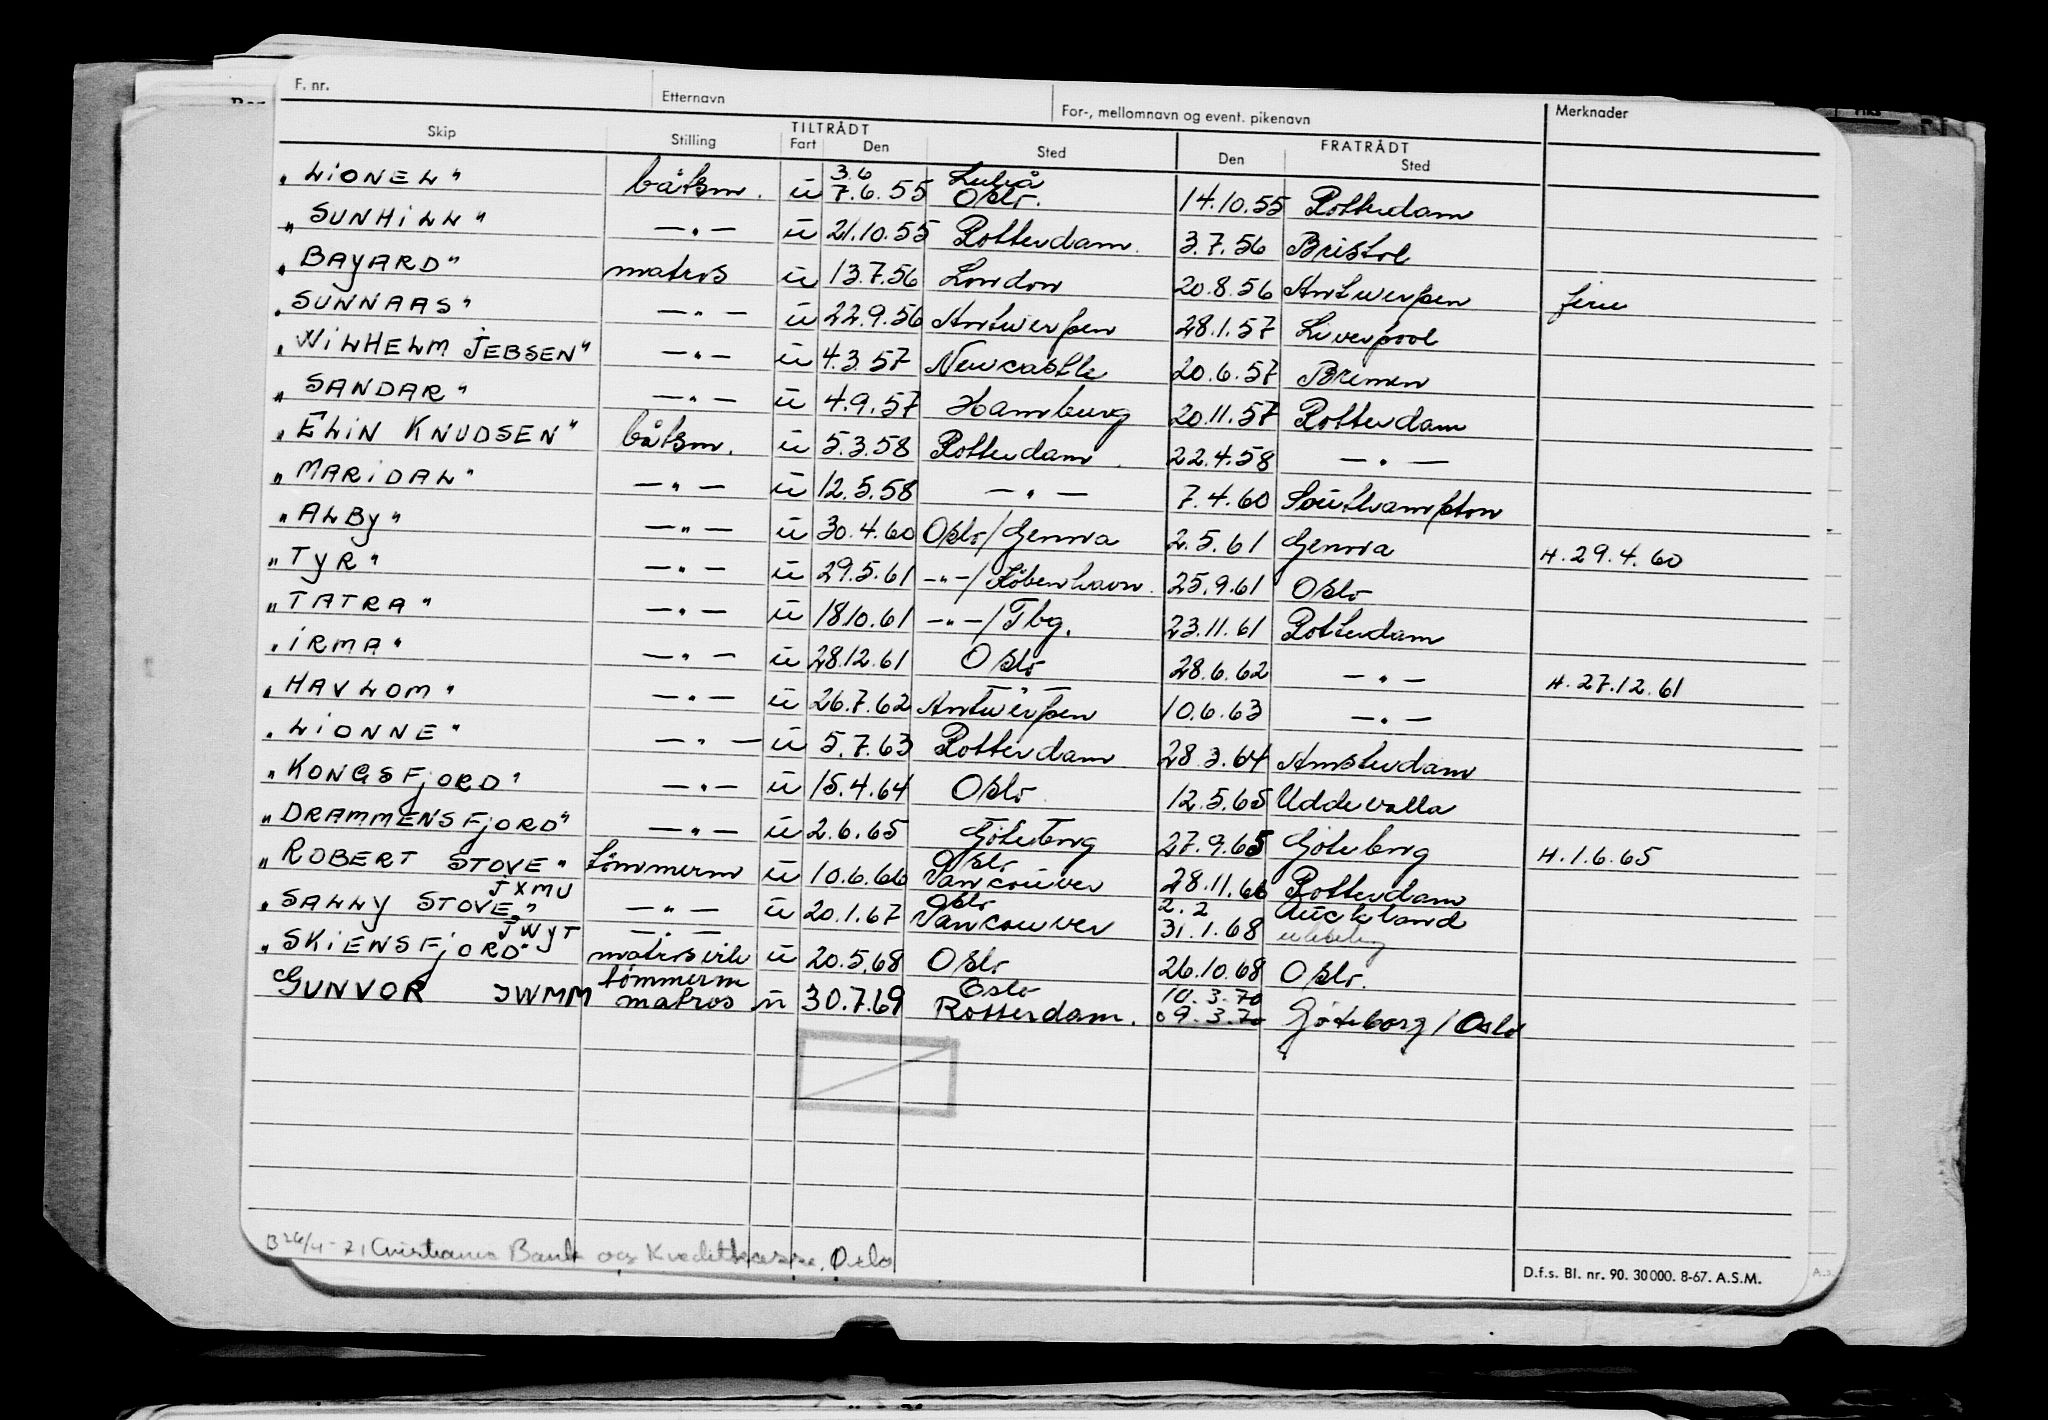 F. nr. Etternavn For-, mellomnavn og event. pikenavn Merknader
Skip Stilling TILTRÅDT Fart Den Sted FRATRÅDT Den Sted
3.6 Luleå
"LIONEL" båtsm. u 7.6.55 Oslo. 14.10.55 Rotterdam
"SUNHILL" —"— u 21.10.55 Rotterdam 3.7.56 Bristol
"BAYARD" matros u 13.7.56 London 20.8.56 Antwerpen ferie
"SUNNAAS" —"— u 22.9.56 Antwerpen 28.1.57 Liverpool
"WILHELM JEBSEN" —"— u 4.3.57 Newcastle 20.6.57 Bremen
"SANDAR" —"— u 4.9.57 Hamburg 20.11.57 Rotterdam
"ELIN KNUDSEN" båtsm. u 5.3.58 Rotterdam. 22.4.58 —"—
"MARIDAL" —"— u 12.5.58 —"— 7.4.60 Southampton
"ALBY" —"— u 30.4.60 Oslo/Genova 2.5.61 Genova H.29.4.60
"TYR" —"— u 29.5.61 —"—/København. 25.9.61 Oslo
"TATRA" —"— u 18.10.61 —"—/Tbg. 23.11.61 Rotterdam
"IRMA" —"— u 28.12.61 Oslo 28.6.62 —"— H.27.12.61
"HAVLOM" —"— u 26.7.62 Antwerpen 10.6.63 —"—
"LIONNE" —"— u 5.7.63 Rotterdam 28.3.64 Amsterdam
"KONGSFJORD" —"— u 15.4.64 Oslo 12.5.65 Uddevalla
"DRAMMENSFJORD" —"— u 2.6.65 Göteborg 27.9.65 Göteborg H.1.6.65
Oslo
"ROBERT STOVE" tömmerm u 10.6.66 Vancouver 28.11.66 Rotterdam
JXMU Oslo 2.2 Auckland
"SALLY STOVE" —"— u 20.1.67 Vancouver 31.1.68
JWYT —"—
"SKIENSFJORD" matros u 20.5.68 Oslo 26.10.68 Oslo.
tømmerm Oslo 10.3.70
GUNVOR JWMM matros u 30.7.69 Rotterdam. 09.3.70 Göteborg/Oslo
B 26/4-71 Cristiania Bank og Kreditkasse, Oslo
D.f.s. Bl. nr. 90. 30000. 8-67. A.S.M.